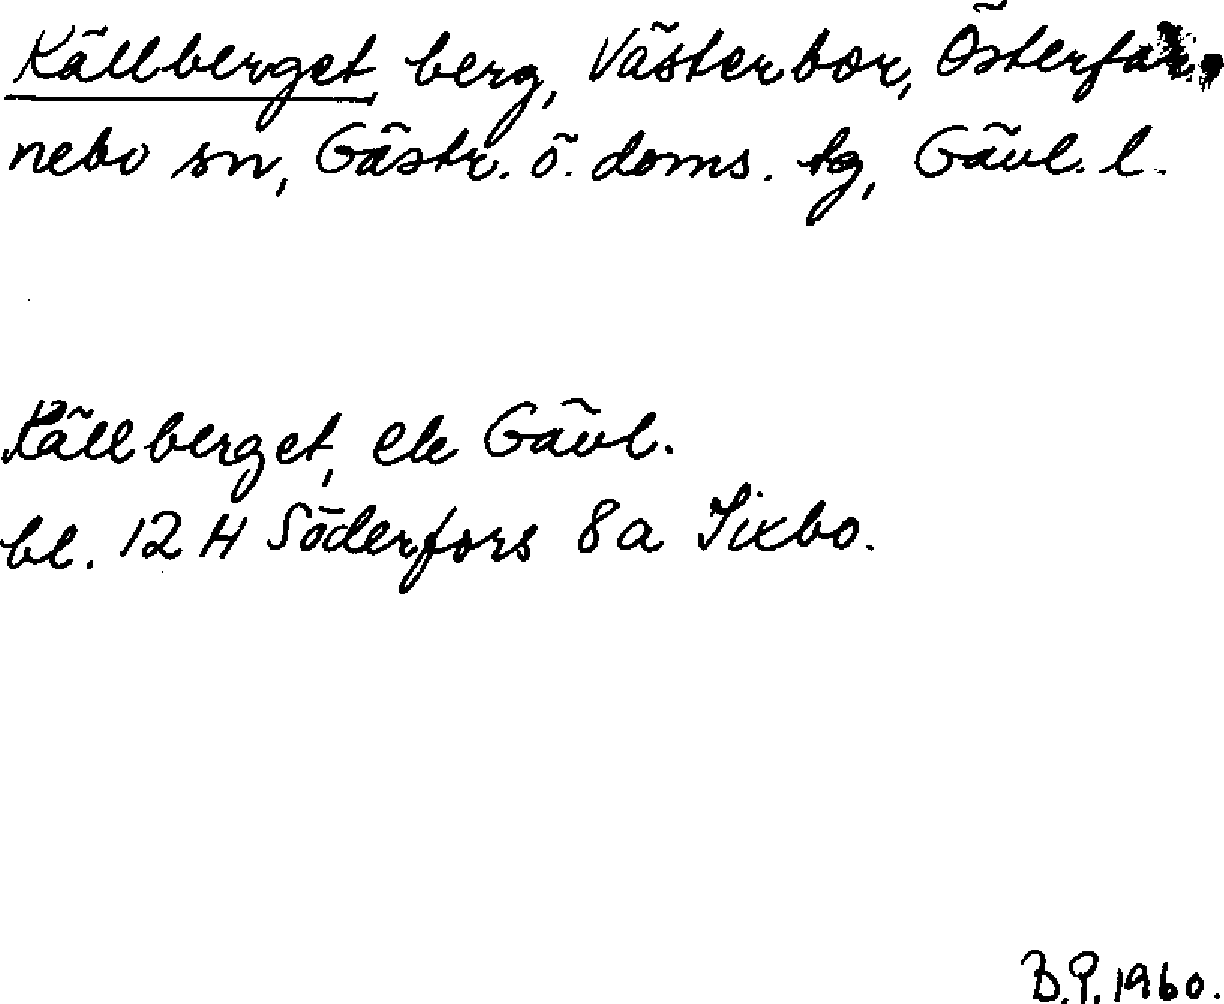 Källberget, berg, Västerbor, Österfär-
nebo sn, Gästr. ö. doms. tg, Gävl. l.
Källberget, ek Gävl.
bl. 12 H Söderfors 8a Sixbo.
B.P. 1960.